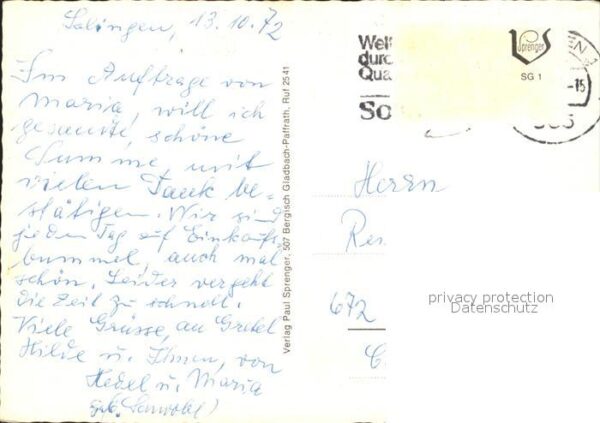 Solingen, 13.10.72
Im Auftrage von
Maria, will ich
gesamte, schöne
Summe mit
vielen Dank be-
stätigen. Wir sind
jeden Tag auf Einkaufs
bummel, auch mal
schön. Leider vergeht
die Zeit zu schnell.
Viele Grüsse, an Gretel
Hilde u. Ihnen, von
Hedel u. Maria
geb.
Verlag Paul Sprenger, 507 Bergisch Gladbach-Paffrath, Ruf 2541
Welt
durc
Qua
So
Sprenger
SG 1
-15
Herrn
Re
672
privacy protection
Datenschutz